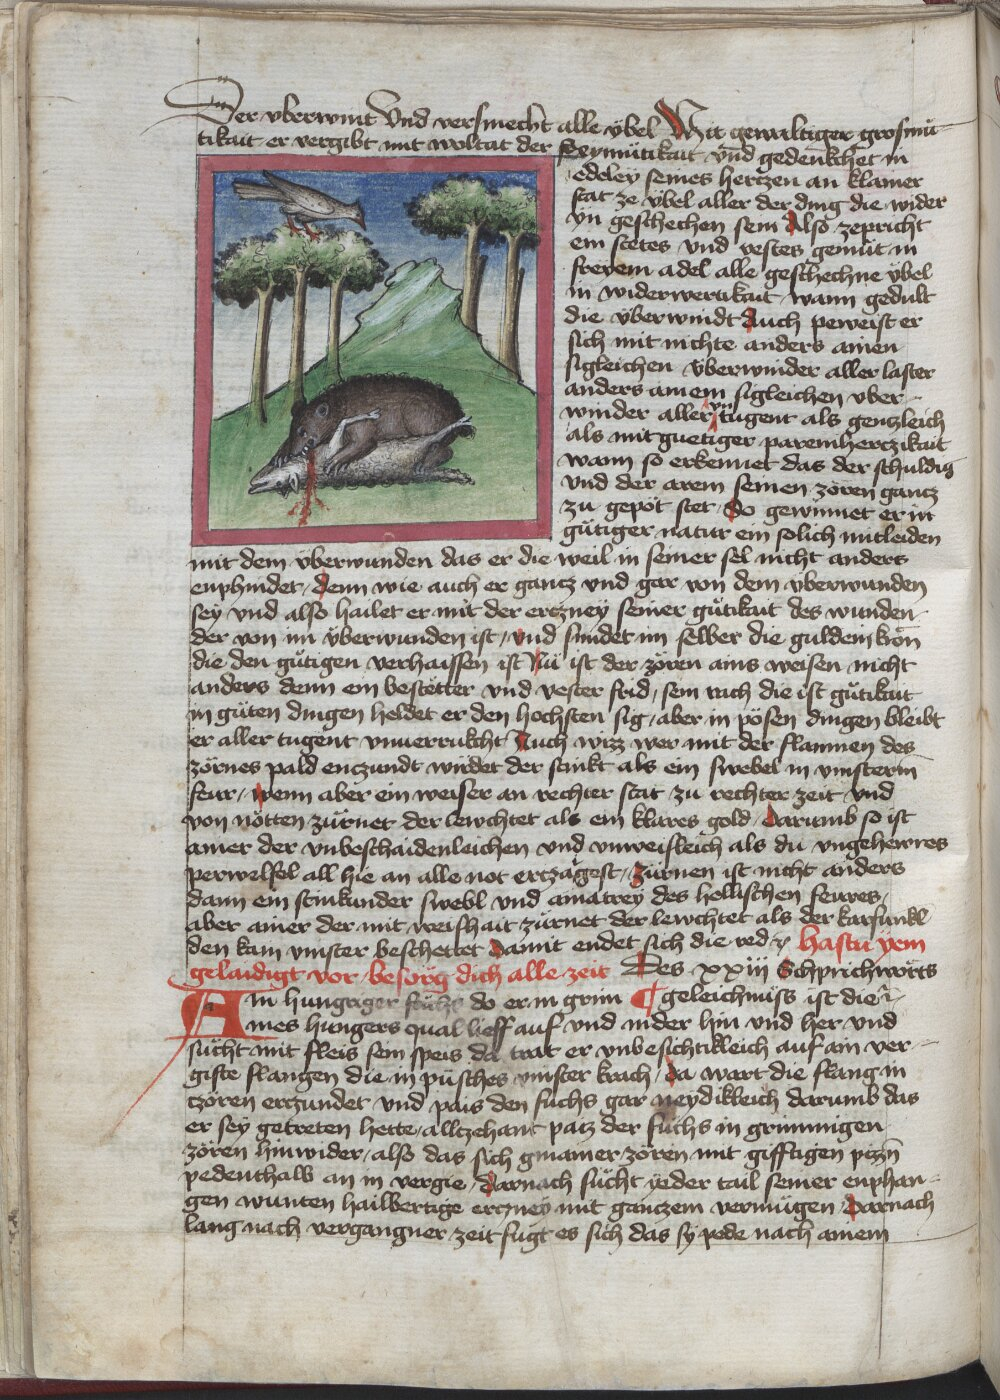 Der vberwint Vnd versmecht alle v̈bel Mit gewaltiger grosmu᷑
tikait er vergibt mit woltat der
seymütikait vnd gedenkchet in
edeley seines herczen an klainer
stat ze v̈bel aller der ding die wider
yn geschechen sein Also zepricht
ein stetes vnd vestes gemüt in
freyem adel alle geschechne v̈bel
in widerwertikait wann gedult
die v̈berwindt Auch peweist er
sich mit nichte anders ainen
sigleichen v̈berwinder aller laster
anders ainem sigleichen vber
winder aller tugent als genczleich
als mit guetiger parmherczikait
wann so erkennet das der schuldig
vnd der arem seinen zoren gancz
zu gepöt stet So gewinnet er in
gütiger natur ein solich mitleiden
mit dem v̈berwunden das er die weil in seiner sel nicht anders
enphindet denn wie auch er gancz vnd gar von dem v̈berwunden
sey vnd also hailet er mit der erczney seiner gütikait des wunden
der von im v̈berwunden ist / vnd sindet im selber die guldem kron
die den gütigen verhaissen ist Nu ist der zören ains weisen nicht
anders denn ein bestetter vnd vester frid / sein rach die ist gütikait
in güten dingen heldet er den hochsten sig / aber in pösen dingen bleibt
er aller tugent vnuerrukcht Auch wizz wer mit der flammen des
zörnes pald enczundt wirdet der stinkt als ein swebel in vinsterm
feur / wenn aber ein weiser an rechter stat zu rechter zeit vnd
von nötten zürnet der lewchtet als ein klares gold / darumb so ist
ainer der vnbeschaidenleichen vnd vnweisleich als du vngehewres
perwelfel all hie an alle not erczaigest / zürnen ist nicht anders
dann ein stinkunder swebl vnd amatrey des hellischen feures
aber ainer der mit weishait zürnet der lewchtet als der karfunkl
den kain vinster beschettet Damit endet sich die red Hastu yem
gelaidigt vor / besorg dich alle zeit Des xxiij Schprichworts
Ain hungriger fuchs do er in grim ¶ geleichnüss ist die
ines hungers qual lieff auf vnd nider hin vnd her vnd
sucht mit fleis sein speis da trat er vnbesichtikleich auf ain ver
gifte slangen die in püsches vinster krach / da wart die slang in
zoren erczundet vnd pais den fuchs gar neydikleich darumb das
er sey getreten hette / allczehant paiz der fuchs in grimmigen
zören hinwider / also das sich ainer zören mit gifftigen
pedenthalb an in vergie / darnach sucht yeder tail seiner enphan
gen wunten hailbertige erczney mit ganczem vermügen / Darnach
lang nach vergangner zeit fugt es sich das sy pede nach ainem